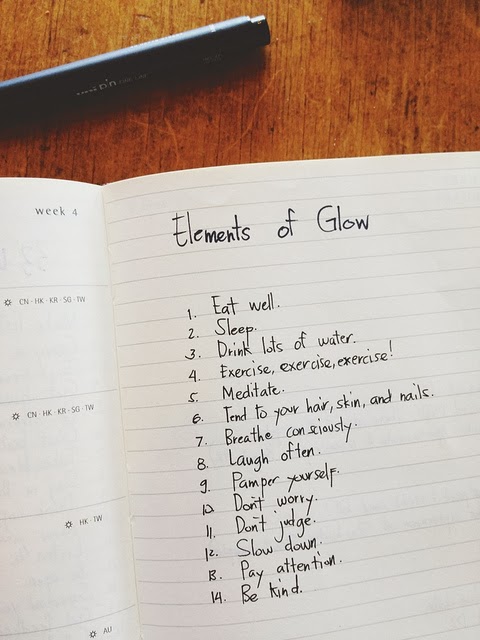 week 4
CN · HK · KR · SG · TW
CN · HK · KR · SG · TW
HK · TW
AU
Elements of Glow
1. Eat well.
2. Sleep.
3. Drink lots of water.
4. Exercise, exercise, exercise!
5. Meditate.
6. Tend to your hair, skin, and nails.
7. Breathe consciously.
8. Laugh often.
9. Pamper yourself.
10. Don't worry.
11. Don't judge.
12. Slow down.
13. Pay attention.
14. Be kind.